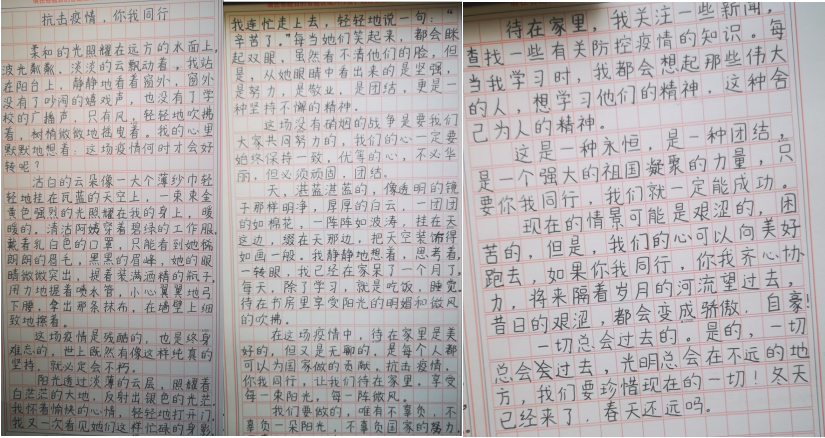 抗击疫情，你我同行
柔和的光照耀在远方的水面上，
波光粼粼。淡淡的云飘动着，我站
在阳台上，静静地看着窗外，窗外
没有了吵闹的嬉戏声，也没有了学
校的广播声，只有风，轻轻地吹拂
着，树梢微微地摇曳着。我的心里
默默地想着：这场疫情何时才会好
转呢？
洁白的云朵像一大个薄纱巾轻
轻地挂在瓦蓝的天空上，一束束金
黄色强烈的光照耀在我的身上，暖
暖的。清洁阿姨穿着碧绿的工作服，
戴着乳白色的口罩，只能看到她
朗朗的眉毛，黑黑的眉峰，她的眼
睛微微突出，提着装满酒精的瓶子，
用力地握着喷水管，小心翼翼地弓
下腰，拿出那条抹布，在墙壁上细
致地擦着。
这场疫情是残酷的，也是终身
难忘的，世上既然有像这样纯真的
坚持，就必定会不朽。
阳光透过淡薄的云层，照耀着
白茫茫的大地，反射出银色的光芒，
我怀着愉快的心情，轻轻地打开门，
我又一次看见她们这样忙碌的身影，
我连忙走上去，轻轻地说一句：“
辛苦了。”每当她们笑起来，都会眯
起双眼，虽然看不清他们的脸，但
是，从她眼睛中看出来的是坚强，
是努力，是敬业，是团结，更是一
种坚持不懈的精神。
这场没有硝烟的战争是要我们
大家共同努力的，我们的心一定要
始终保持一致，优等的心，不必华
丽，但必须顽固，团结。
天，湛蓝湛蓝的，像透明的镜
子那样明净，厚厚的白云，一团团
的如棉花，一阵阵如波涛，挂在天
这边，缀在天那边，把天空装饰得
如画一般。我静静地想着，思考着，
一转眼，我已经在家呆了一个月了，
每天，除了学习，就是吃饭，睡觉，
待在书房里享受阳光的明媚和微风
的吹拂。
在这场疫情中，待在家里是美
好的，但又是无聊的，是每个人都
可以为国家做的贡献，抗击疫情，
你我同行，让我们待在家里，享受
每一束阳光，每一阵微风。
我们要做的，唯有不辜负，不
辜负一朵阳光，不辜负国家的努力。
待在家里，我关注一些新闻，
查找一些有关防控疫情的知识。每
当我学习时，我都会想起那些伟大
的人，想学习他们的精神，这种舍
己为人的精神。
这是一种永恒，是一种团结，
是一个强大的祖国凝聚的力量，只
要你我同行，我们就一定能成功。
现在的情景可能是艰涩的，困
苦的，但是，我们的心可以向美好
跑去，如果你我同行，你我齐心协
力，将来隔着岁月的河流望过去，
昔日的艰涩，都会变成骄傲，自豪！
一切总会过去的。是的，一切
总会过去，光明总会在不远的地
方，我们要珍惜现在的一切！冬天
已经来了，春天还远吗。